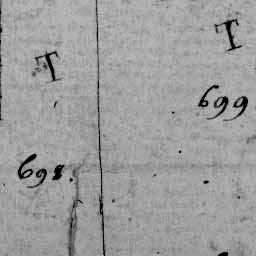 T
698.
T
699